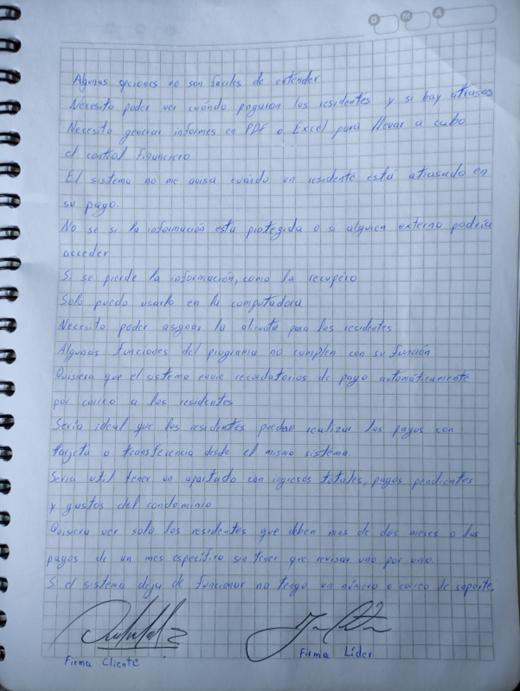 D M A
Algunas opciones no son faciles de entender
Necesito poder ver cuándo pagaron los residentes y si hay atrasos
Necesito generar informes en PDF o Excel para llevar a cabo
el control Financiero
El sistema no me avisa cuándo un residente está atrasado en
su pago.
No se si la información esta protegida o si alguien externo podría
acceder
Si se pierde la información, como la recupero
Solo puedo usarlo en la computadora
Necesito poder asignar la alicuota para los residentes
Algunas funciones del programa no cumplen con su función
Quisiera que el sistema envie recordatorios de pago automáticamente
por correo a los residentes
Seria ideal que los residentes puedan realizar los pagos con
tarjeta o transferencia desde el mismo sistema.
Seria util tener un apartado con ingresos totales, pagos pendientes
y gastos del condominio
Quisiera ver solo los residentes que deben mas de dos meses o los
pagos de un mes especifico sin tener que revisar uno por uno.
Si el sistema deja de funcionar no tengo un número o correo de soporte.
Firma Cliente
Firma Líder